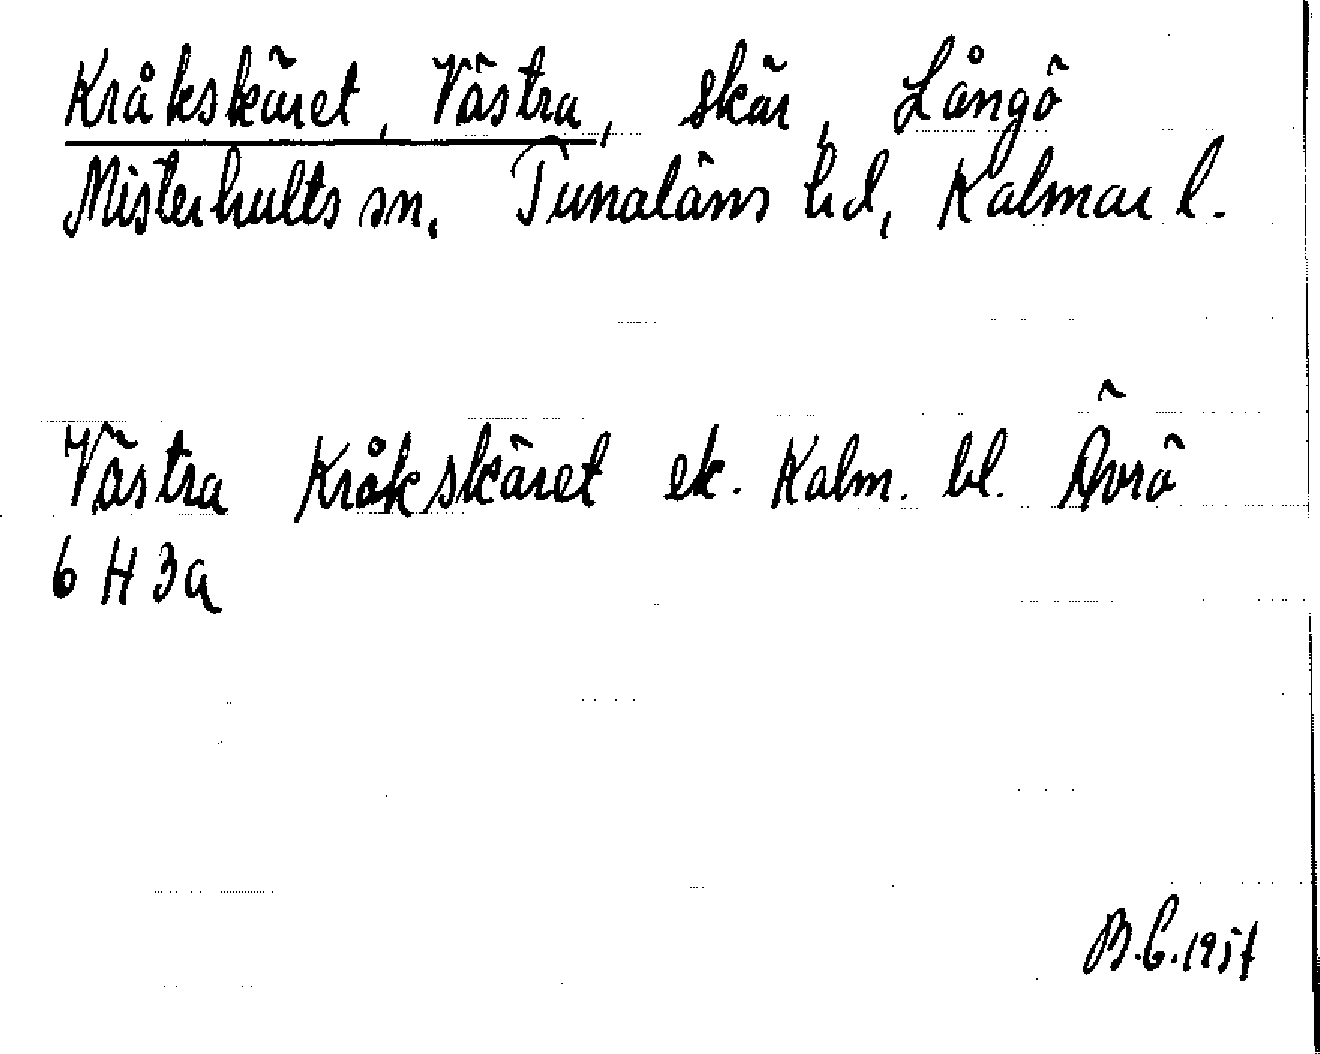 Kråkskäret, Västra, skär, Långö
Misterhults sn. Tunaläns hd, Kalmar l.
Västra Kråkskäret ek. Kalm. bl. Ävrö
6 H 3a
B.C. 1957